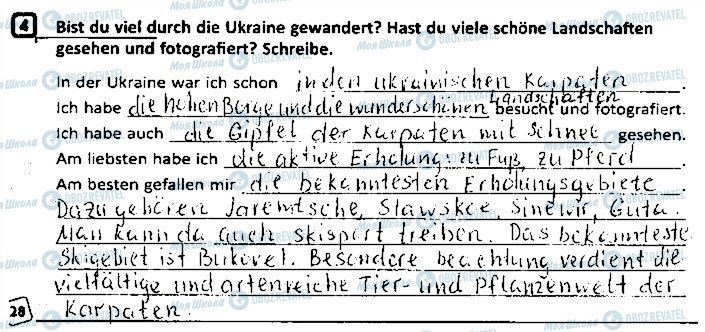 4 Bist du viel durch die Ukraine gewandert? Hast du viele schöne Landschaften
gesehen und fotografiert? Schreibe.
In der Ukraine war ich schon in den ukrainischen Karpaten.
Ich habe die hohen Berge und die wunderschönen Landschaften besucht und fotografiert.
Ich habe auch die Gipfel der Karpaten mit Schnee gesehen.
Am liebsten habe ich die aktive Erholung: zu Fuß, zu Pferd.
Am besten gefallen mir die bekanntesten Erholungsgebiete
Dazu gehören Jaremtsche, Slawskoe, Sinewir, Guta.
Man kann da auch skisport treiben. Das bekannteste
Skigebiet ist Bukovel. Besondere beachtung verdient die
vielfältige und artenreiche Tier- und Pflanzenwelt der
28 Karpaten.